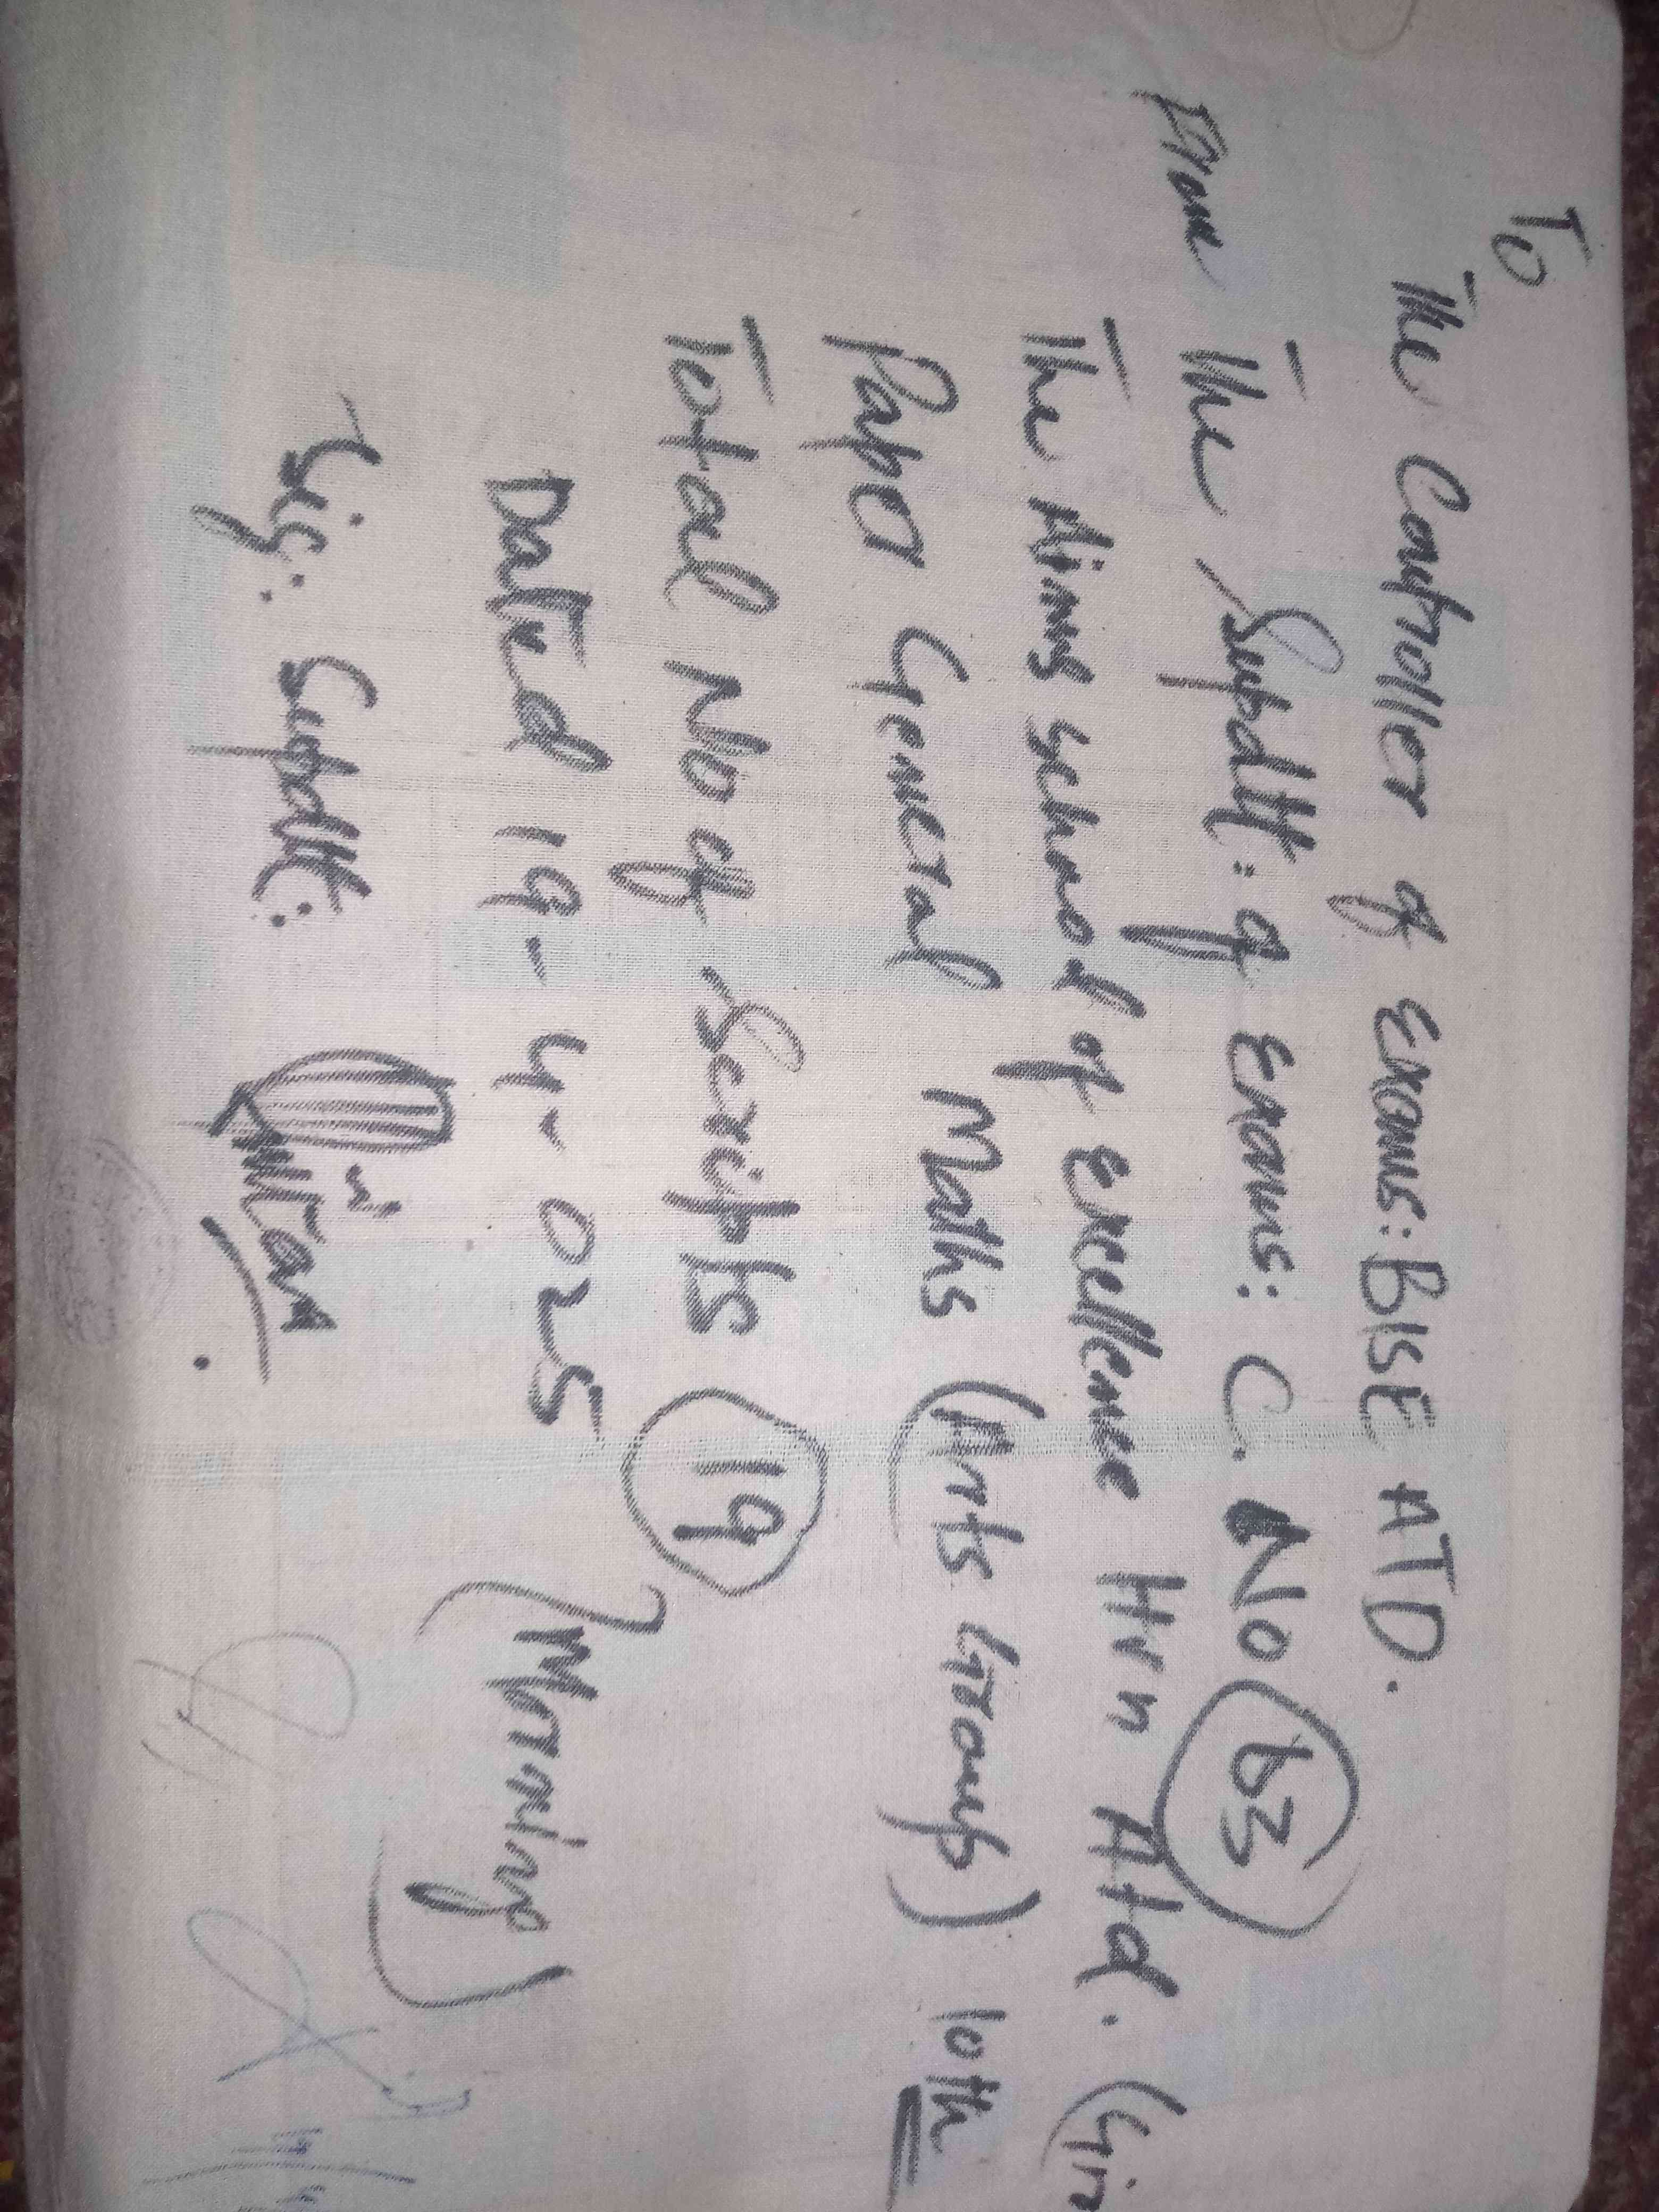 To
The Controller of Exams: BISE ATD.
From The Supdtt: of Exams: C. No 63
The Aims school of excellence Hvn Atd. (Gir
Paper General Maths (Arts Group) 10th
Total No of Scripts 19
Dated 19-4-025 (Morning)
Sig: Supdtt: